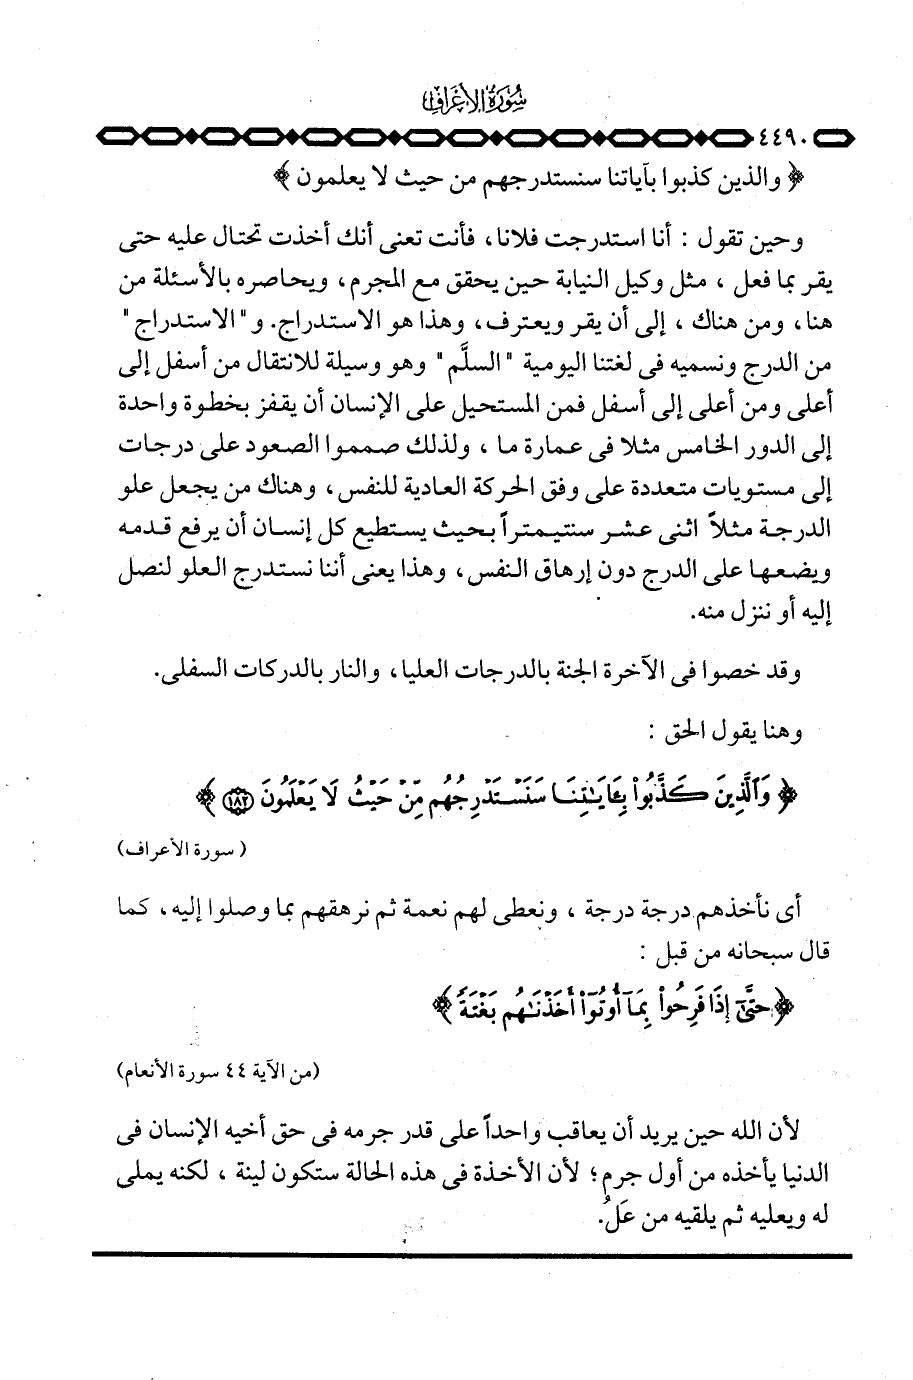 سُورَةُ الأَعْرَافِ
٤٤٩٠
﴿ والذين كذبوا بآياتنا سنستدرجهم من حيث لا يعلمون ﴾
وحين تقول : أنا استدرجت فلانا، فأنت تعنى أنك أخذت تحتال عليه حتى
يقر بما فعل ، مثل وكيل النيابة حين يحقق مع المجرم، ويحاصره بالأسئلة من
هنا، ومن هناك ، إلى أن يقر ويعترف، وهذا هو الاستدراج. و "الاستدراج"
من الدرج ونسميه فى لغتنا اليومية "السلَّم" وهو وسيلة للانتقال من أسفل إلى
أعلى ومن أعلى إلى أسفل فمن المستحيل على الإنسان أن يقفز بخطوة واحدة
إلى الدور الخامس مثلا فى عمارة ما ، ولذلك صمموا الصعود على درجات
إلى مستويات متعددة على وفق الحركة العادية للنفس، وهناك من يجعل علو
الدرجة مثلاً اثنى عشر سنتيمتراً بحيث يستطيع كل إنسان أن يرفع قدمه
ويضعها على الدرج دون إرهاق النفس، وهذا يعنى أننا نستدرج العلو لنصل
إليه أو ننزل منه.
وقد خصوا فى الآخرة الجنة بالدرجات العليا، والنار بالدركات السفلى.
وهنا يقول الحق :
﴿ وَالَّذِينَ كَذَّبُواْ بِـَٔايَـٰتِنَا سَنَسْتَدْرِجُهُم مِّنْ حَيْثُ لَا يَعْلَمُونَ ١٨٢ ﴾
( سورة الأعراف)
أى نأخذهم درجة درجة ، ونعطى لهم نعمة ثم نرهقهم بما وصلوا إليه، كما
قال سبحانه من قبل :
﴿ حَتَّىٰٓ إِذَا فَرِحُواْ بِمَآ أُوتُوٓاْ أَخَذْنَـٰهُم بَغْتَةً ﴾
(من الآية ٤٤ سورة الأنعام)
لأن الله حين يريد أن يعاقب واحداً على قدر جرمه فى حق أخيه الإنسان فى
الدنيا يأخذه من أول جرم؛ لأن الأخذة فى هذه الحالة ستكون لينة ، لكنه يملى
له ويعليه ثم يلقيه من عَلُ.